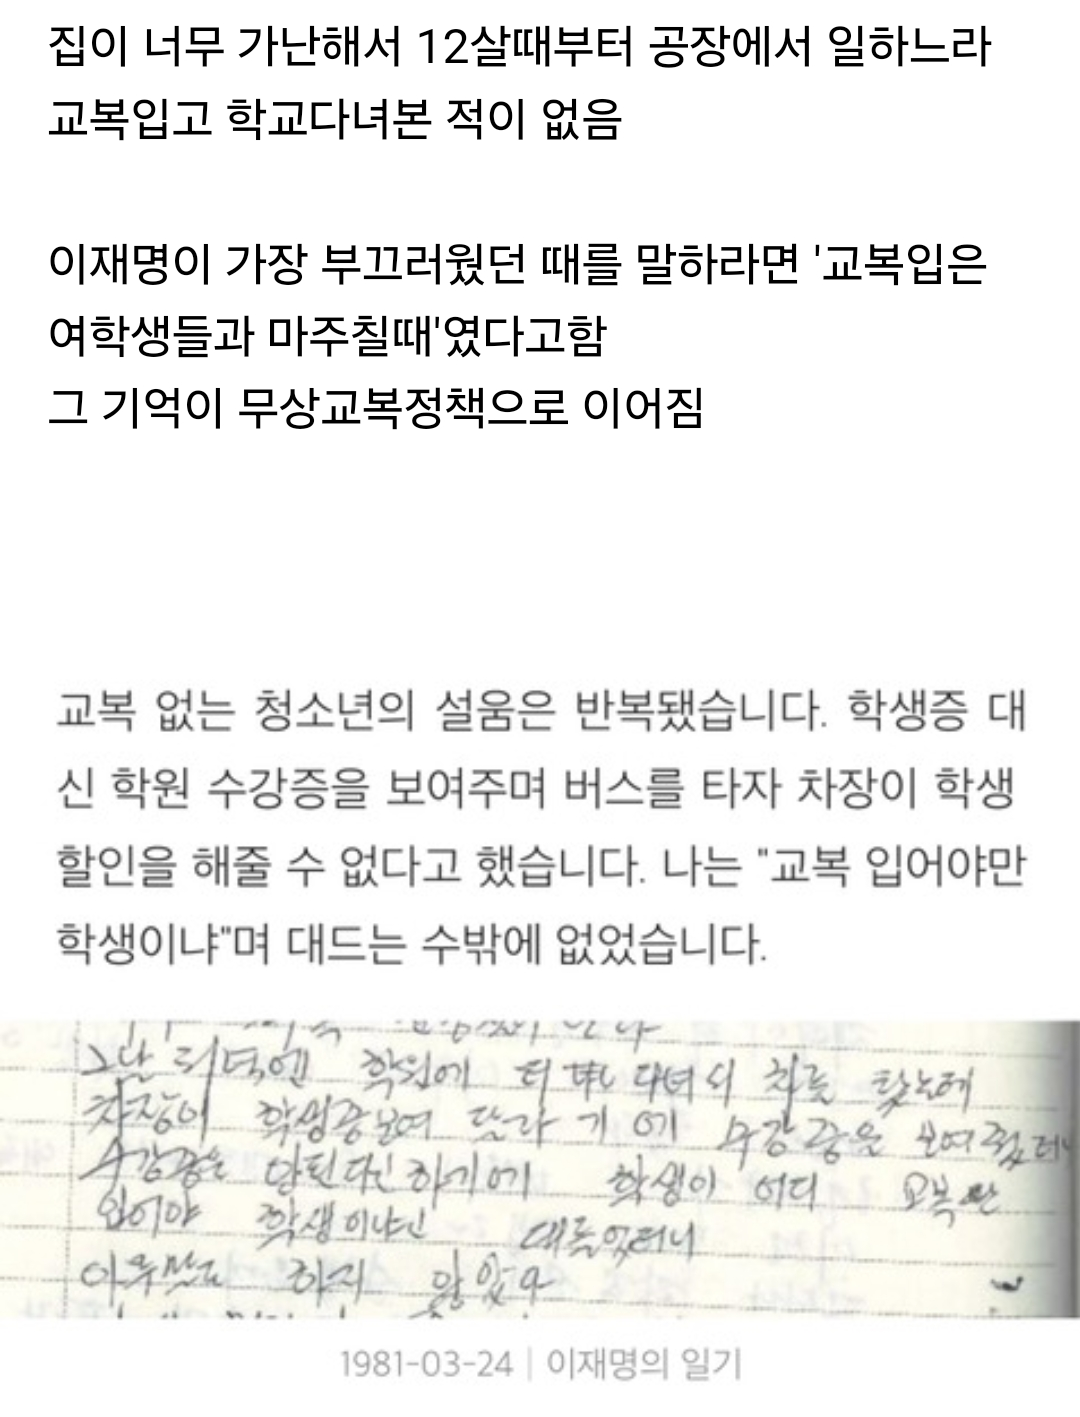 집이 너무 가난해서 12살때부터 공장에서 일하느라
교복입고 학교다녀본 적이 없음
이재명이 가장 부끄러웠던 때를 말하라면 '교복입은
여학생들과 마주칠때'였다고함
그 기억이 무상교복정책으로 이어짐
교복 없는 청소년의 설움은 반복됐습니다. 학생증 대
신 학원 수강증을 보여주며 버스를 타자 차장이 학생
할인을 해줄 수 없다고 했습니다. 나는 "교복 입어야만
학생이냐"며 대드는 수밖에 없었습니다.
학원에 차를 탔는데
차장이 학생증보여 달라 기에 수강증을 보여줬더니
수강증은 안된다고 하기에 학생이 어디 교복만
입어야 학생이냐고 대들었더니
아무말도 하지 않았다
1981-03-24 | 이재명의 일기